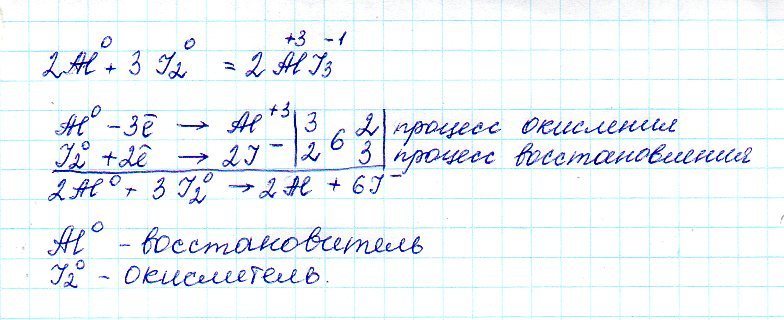 2Al⁰ + 3 J₂⁰ = 2 Al⁺³J₃⁻¹
Al⁰ - 3ē → Al⁺³ | 3 | 6 | 2 | процесс окисления
J₂⁰ + 2ē → 2J⁻ | 2 | | 3 | процесс восстановления
2Al⁰ + 3 J₂⁰ → 2Al + 6J⁻
Al⁰ - восстановитель
J₂⁰ - окислитель.